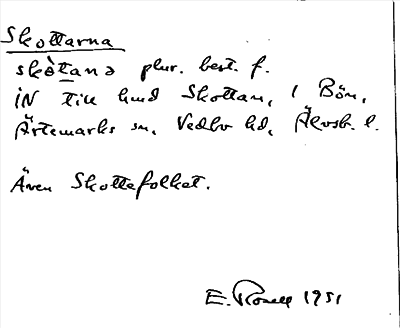 Skottarna
skòtana plur. best. f.
IN till hmd Skottan, i Bön,
Ärtemarks sn, Vedbo hd, Älvsb. l.
Även Skottefolket.
E. Rosell 1951